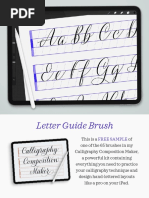 Aa Bb Cc D
Ff Gg H
Letter Guide Brush
Calligraphy
Composition
Maker
This is a FREE SAMPLE of
one of the 65 brushes in my
Calligraphy Composition Maker,
a powerful kit containing
everything you need to practice
your calligraphy technique and
design hand-lettered layouts
like a pro on your iPad.